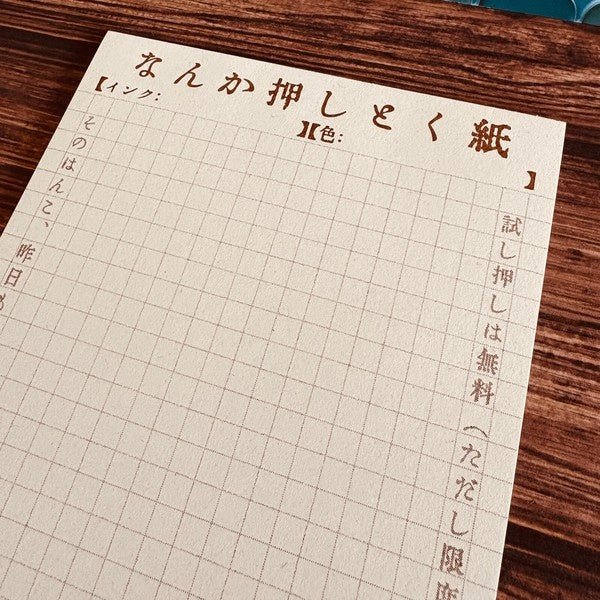 なんか押しとく紙
【インク: 】【色: 】
試し押しは無料（ただし限度
そのはんこ、昨日も